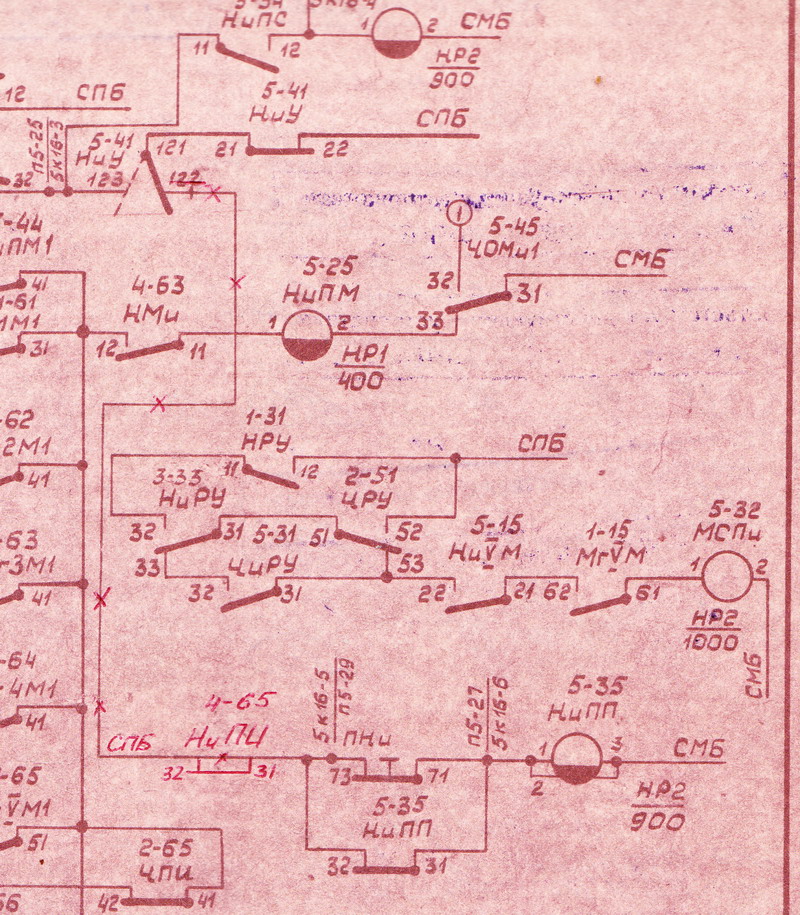 НиПС
1 2 СМБ
11 12
НР2
900
12 СПБ
5-41
НиУ
СПБ
П5-25
5к16-3
5-41
НиУ
121
21 22
32
123
122
1
5-45
ЦОМи1
СМБ
32
31
33
-44
ПМ1
41
-61
1М1
31
4-63
НМи
12 11
5-25
НиПМ
1 2
НР1
400
-62
2М1
41
1-31
НРУ
11 12
СПБ
3-33
НиРУ
2-51
ЦРУ
32 31
5-31
ЦиРУ
51 52
33
53
32 31
5-15
НиVМ
22 21
1-15
МгVМ
62 61
5-32
МСПи
1 2
НР2
1000
СМБ
-63
г3М1
41
-64
4М1
41
4-65
НиПЦ
СПБ
32 31
5к16-5
П5-29
ПНи
73 71
П5-27
5к16-6
5-35
НиПП
1 3
2
СМБ
НР2
900
-65
VМ1
51
5-35
НиПП
32 31
2-65
ЦПИ
42 41
56